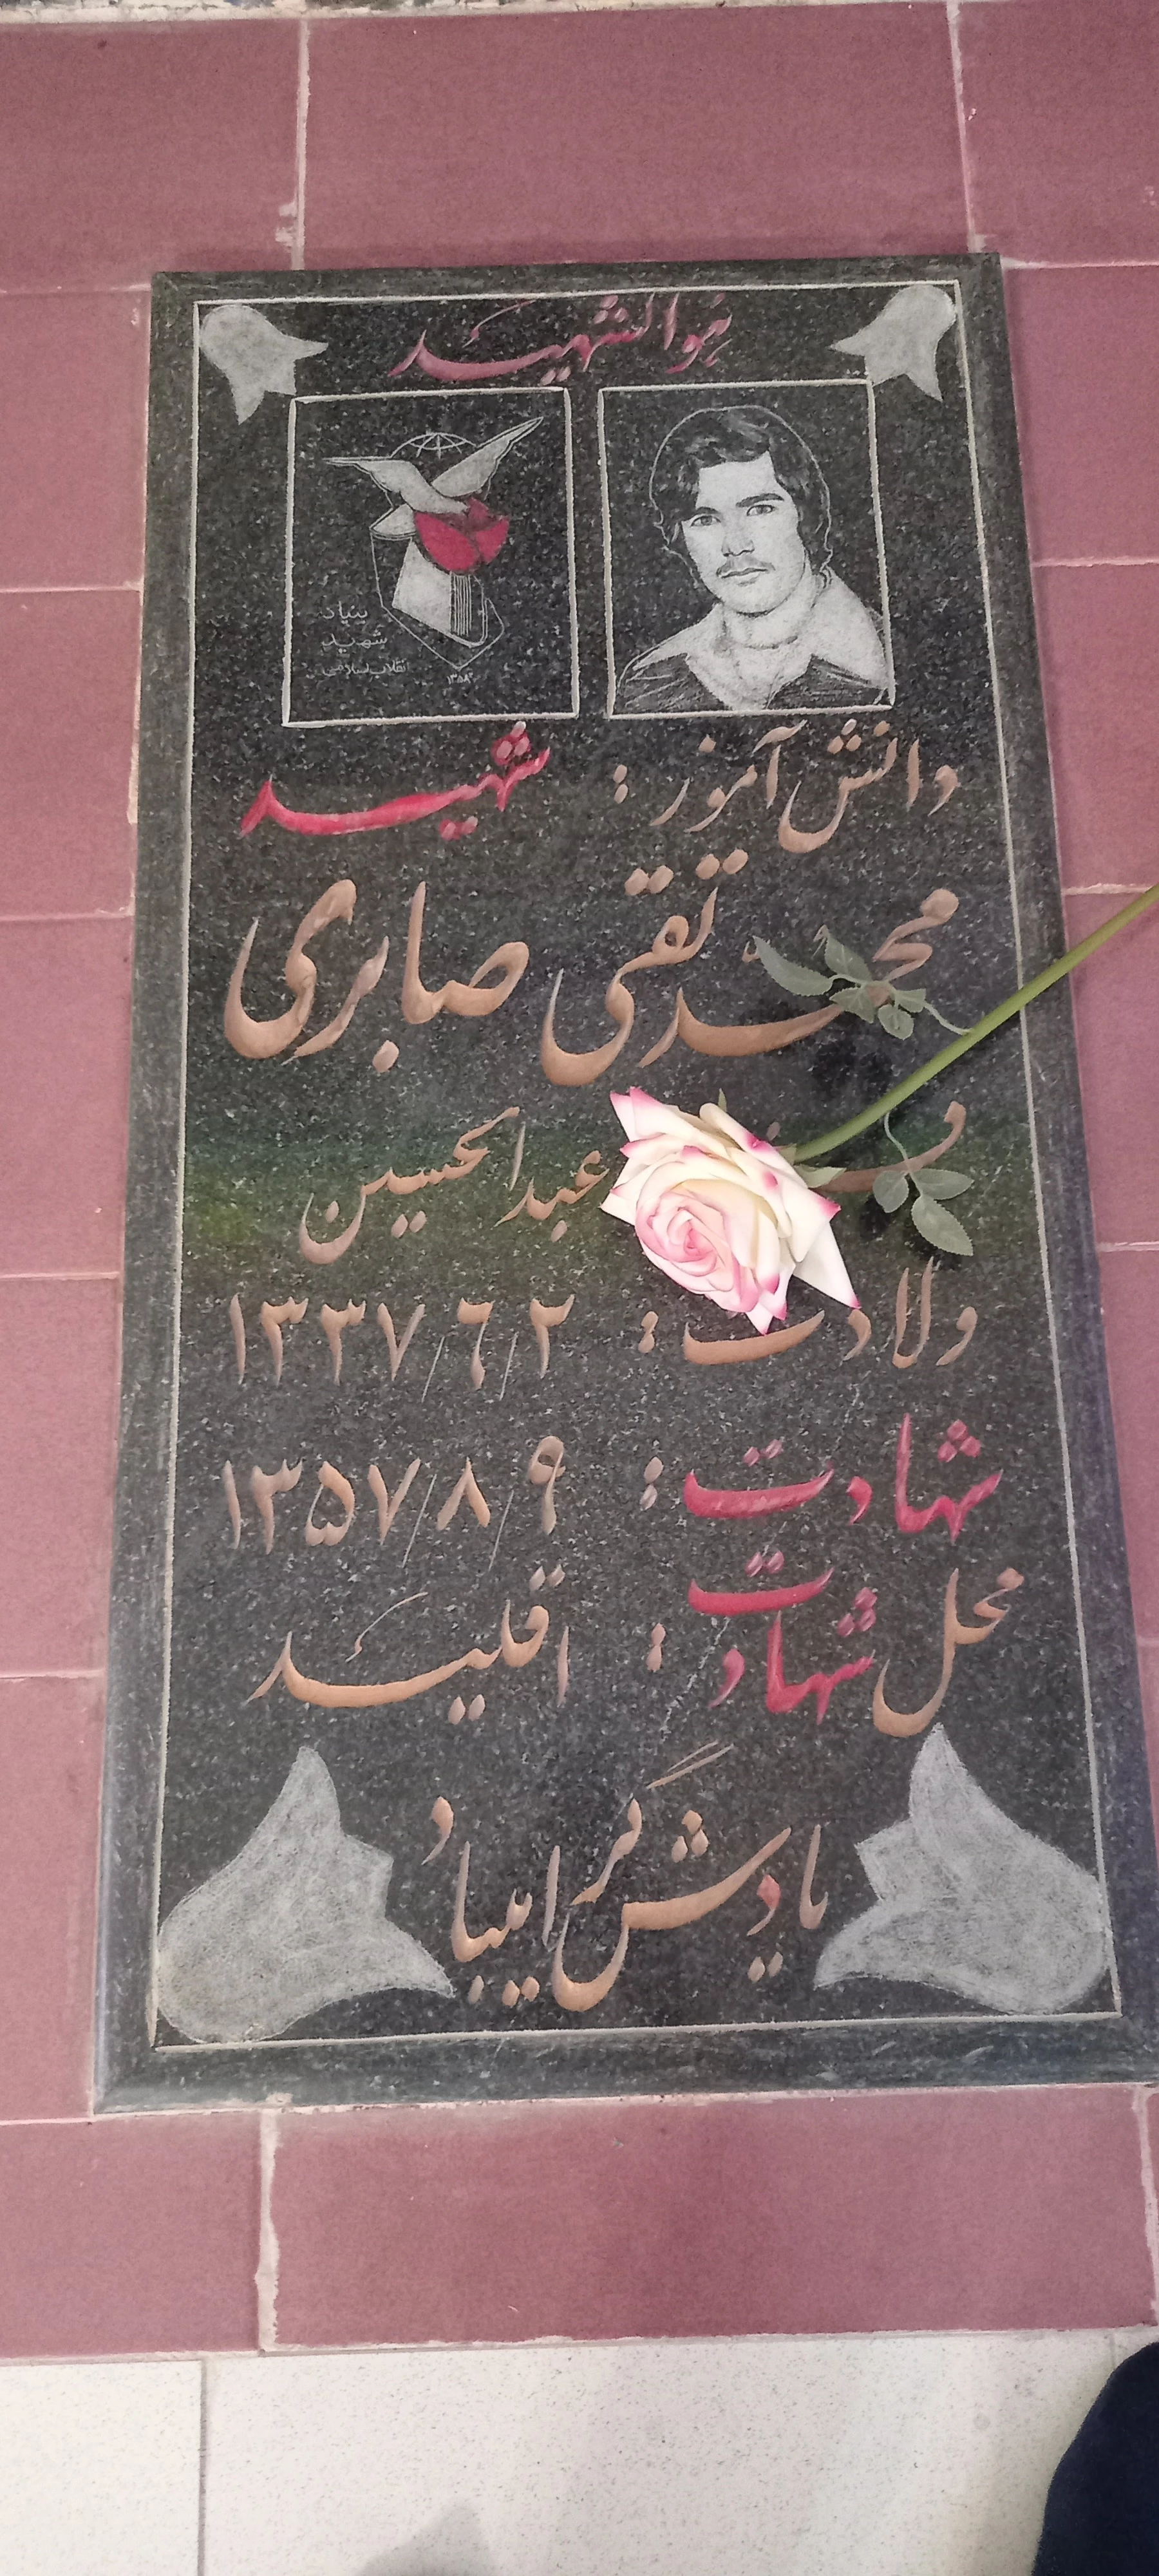 هوالشهید
بنیاد
شهید
انقلاب اسلامی
۱۳۵۸
دانش آموز : شهید
محمدتقی صابری
عبدالحسین
ولادت : ۱۳۳۷/۶/۲
شهادت : ۱۳۵۷/۸/۹
محل شهادت : اقلید
یادش گرامیباد